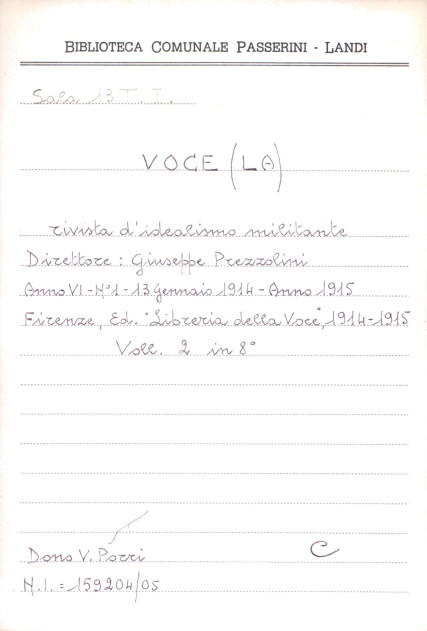 BIBLIOTECA COMUNALE PASSERINI - LANDI
Sala 13 T. I.
VOCE (LA)
rivista d'idealismo militante
Direttore : Giuseppe Prezzolini
Anno VI - N°1 - 13 Gennaio 1914 - Anno 1915
Firenze, Ed. "Libreria della Voce", 1914-1915
Voll. 2 in 8°
Dono V. Porri
C
N.I. = 159204/05